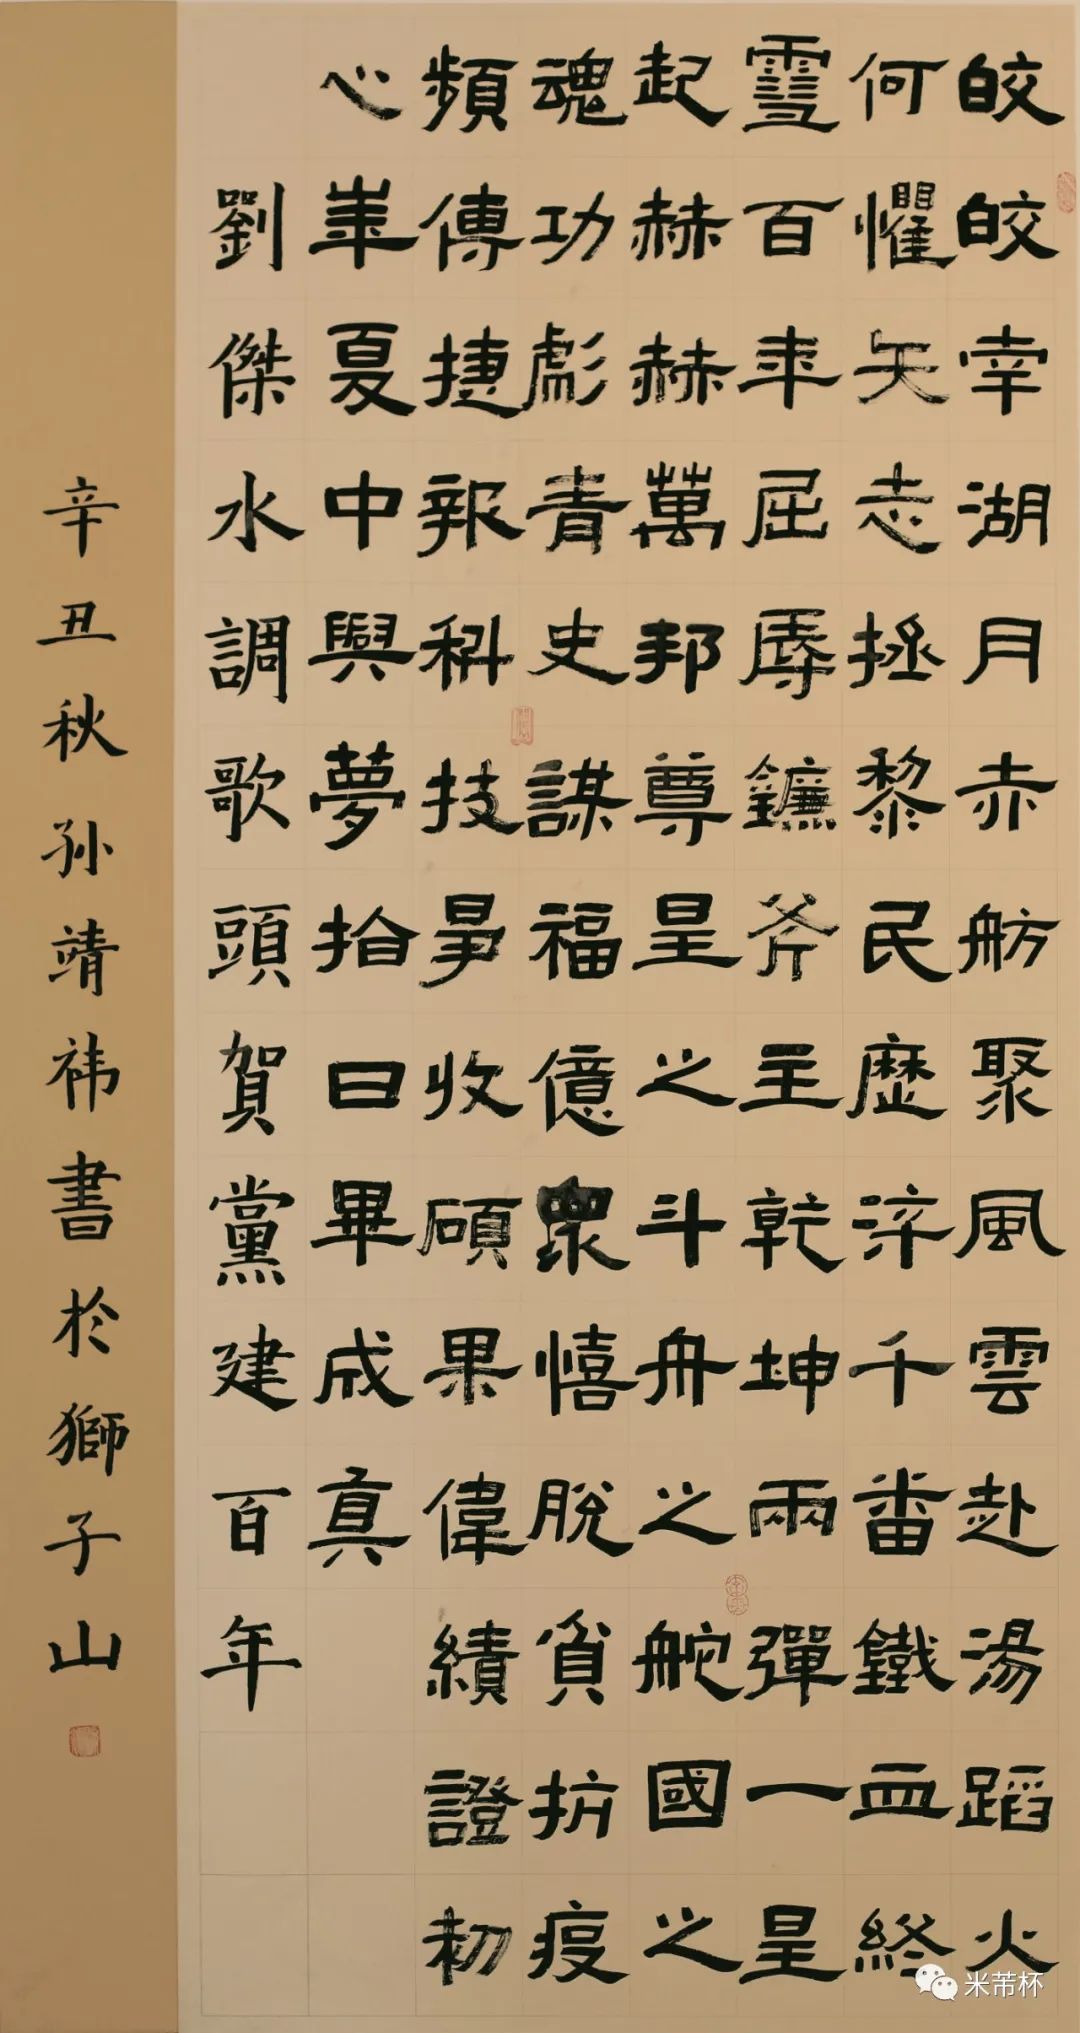 皎皎幸湖月赤舫聚風雲赴湯蹈火
何懼矢志拯黎民歷淬千番鐵血終
雪百年屈辱鐮斧主乾坤兩彈一星
起赫赫萬邦尊星之斗舟之舵國之
魂功彪青史謀福億衆憘脫貧抗疫
頻傳捷報科技事收碩果偉績證初
心華夏中興夢指日畢成真
劉傑水調歌頭賀黨建百年
辛丑秋孙靖祎書於獅子山
米芾杯